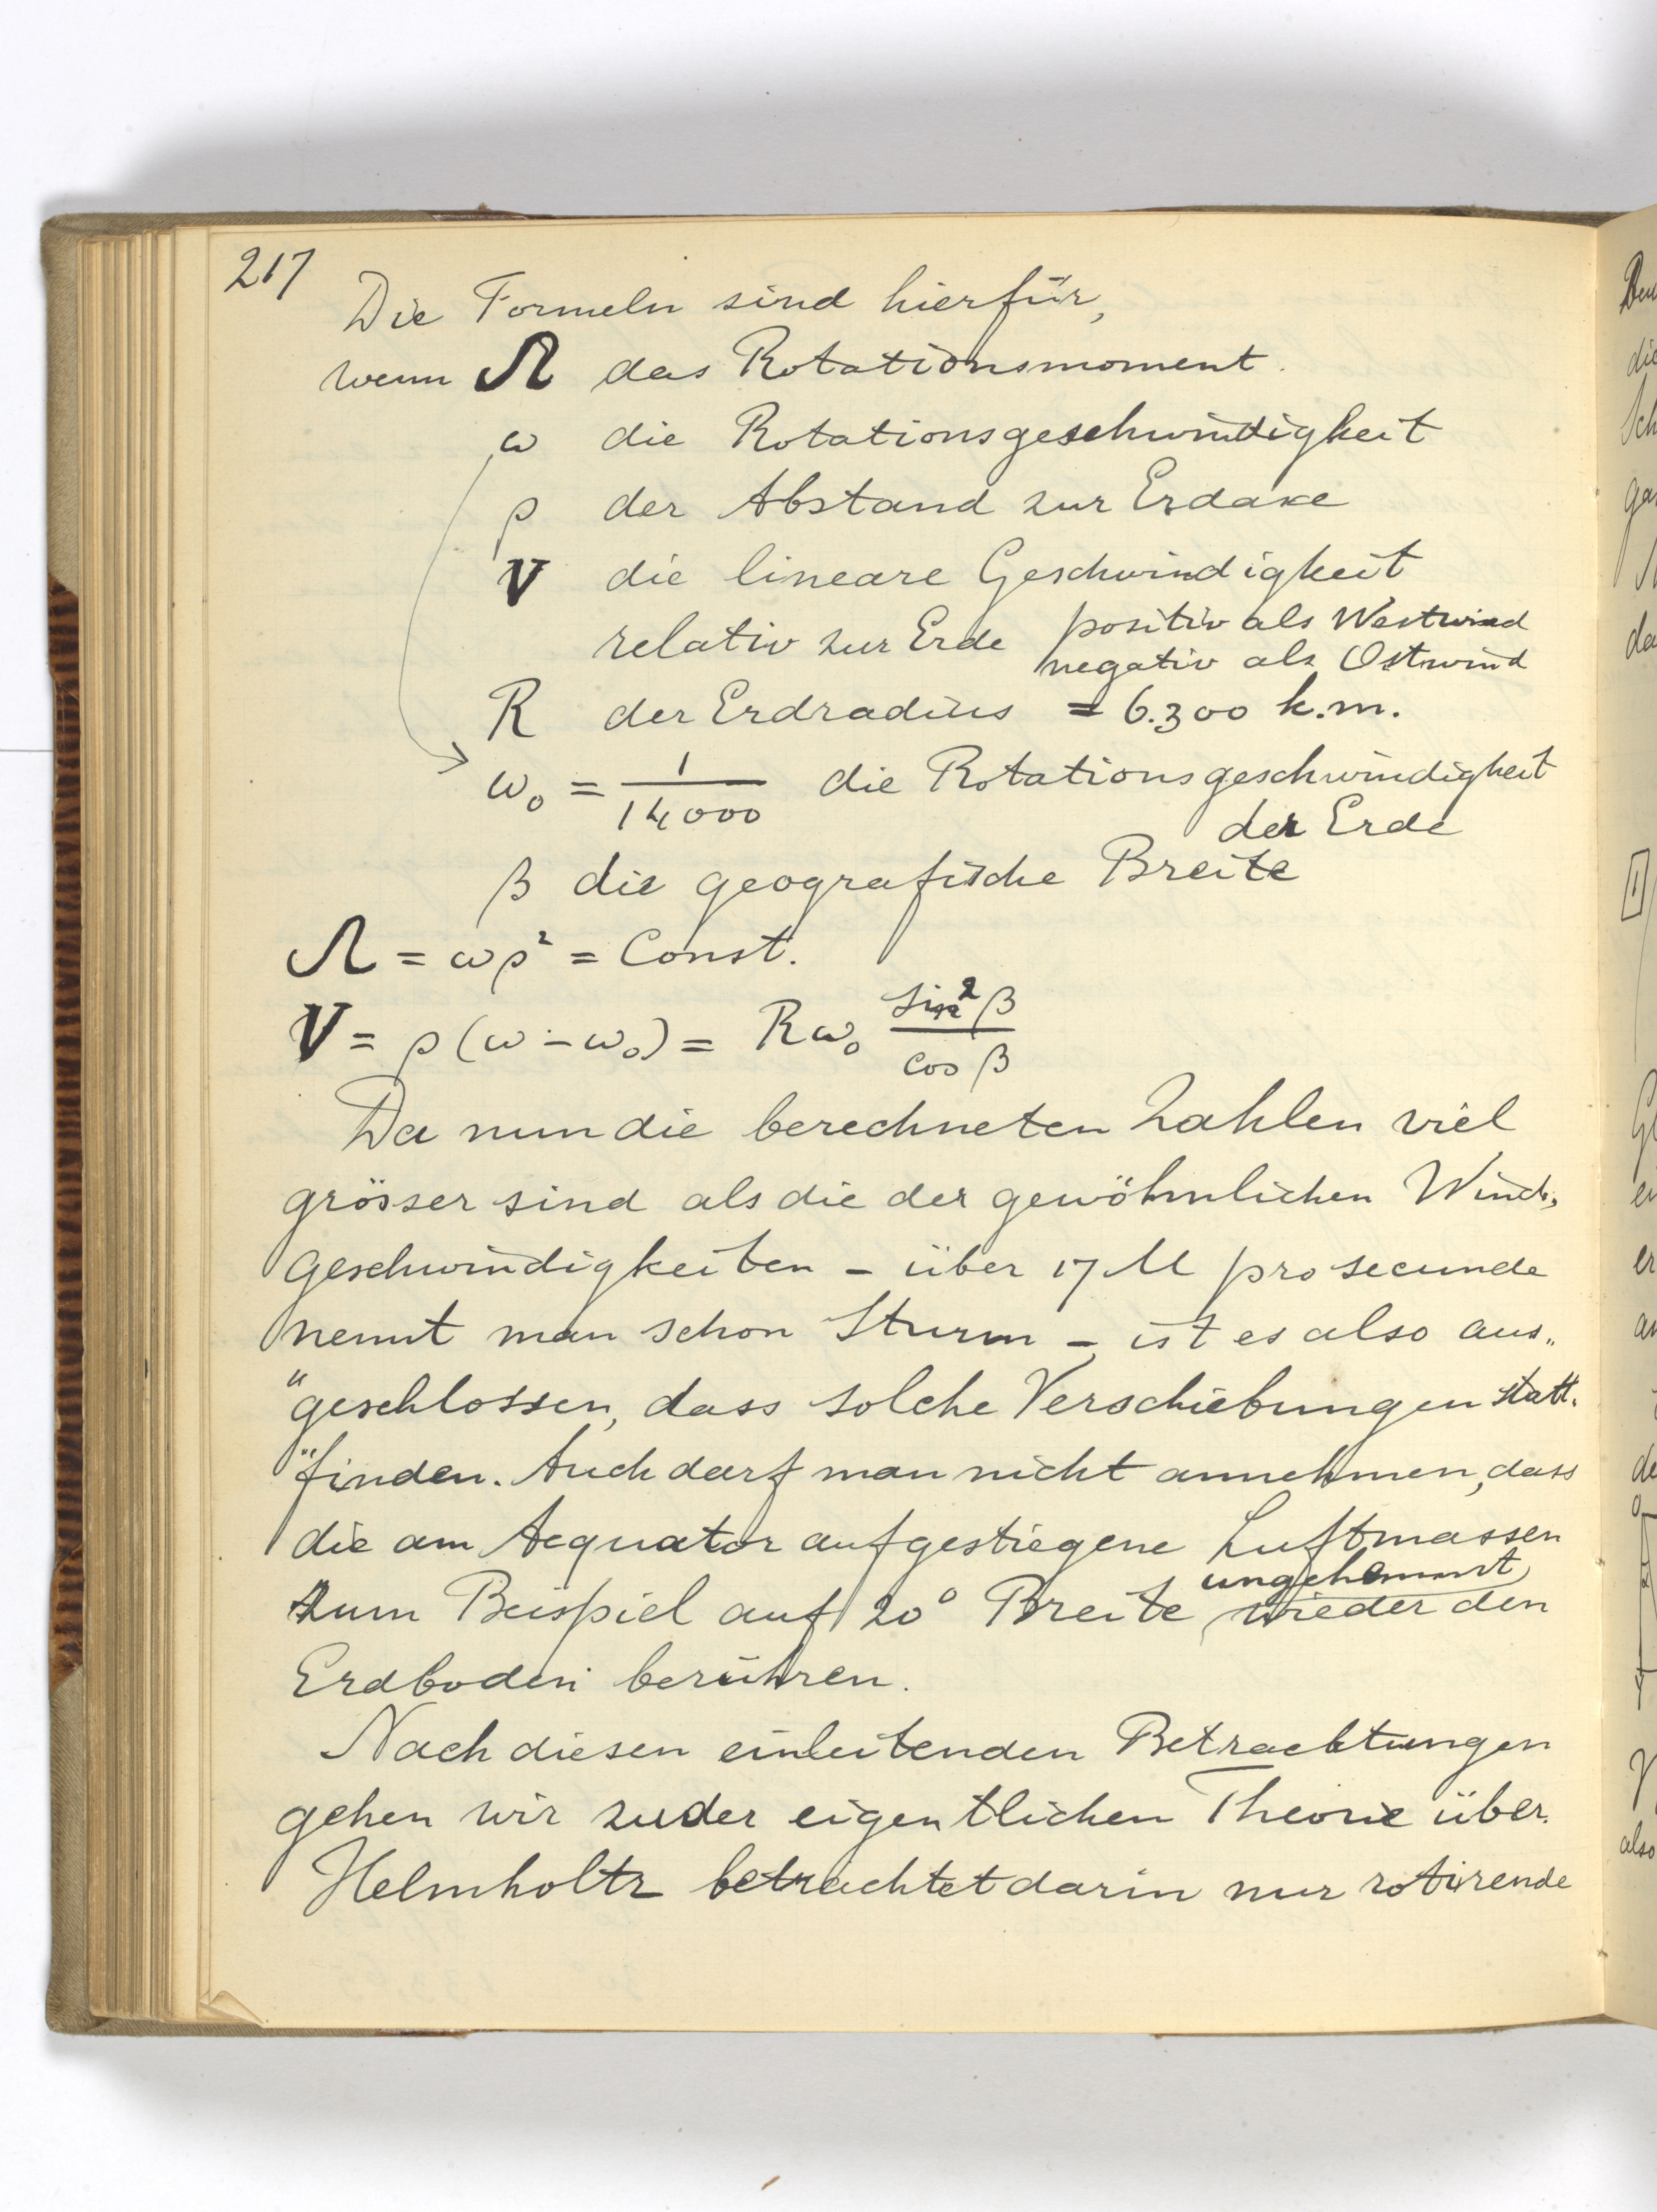 217
Die Formeln sind hierfür,
wenn Ω das Rotationsmoment.
ω die Rotationsgeschwindigkeit
ρ der Abstand zur Erdaxe
V die lineare Geschwindigkeit
relativ zur Erde positiv als Westwind
negativ als Ostwind
R der Erdradius = 6.300 k.m.
ω₀ = 1/14000 die Rotationsgeschwindigkeit
der Erde
β die geografische Breite
Ω = ωρ² = Const.
V = ρ(ω - ω₀) = Rω₀ sin²β/cos β
Da nun die berechneten Zahlen viel
grösser sind als die der gewöhnlichen Wind„
geschwindigkeiten – über 17 M pro secunde
nennt man schon Sturm – ist es also aus„
"geschlossen, dass solche Verschiebungen statt„
"finden. Auch darf man nicht annehmen, dass
die am Aequator aufgestiegene Luftmassen
ungehemmt
zum Beispiel auf 20° Breite wieder den
Erdboden berühren.
Nach diesen einleitenden Betrachtungen
gehen wir zu der eigentlichen Theorie über.
Helmholtz betrachtet darin nur rotirende